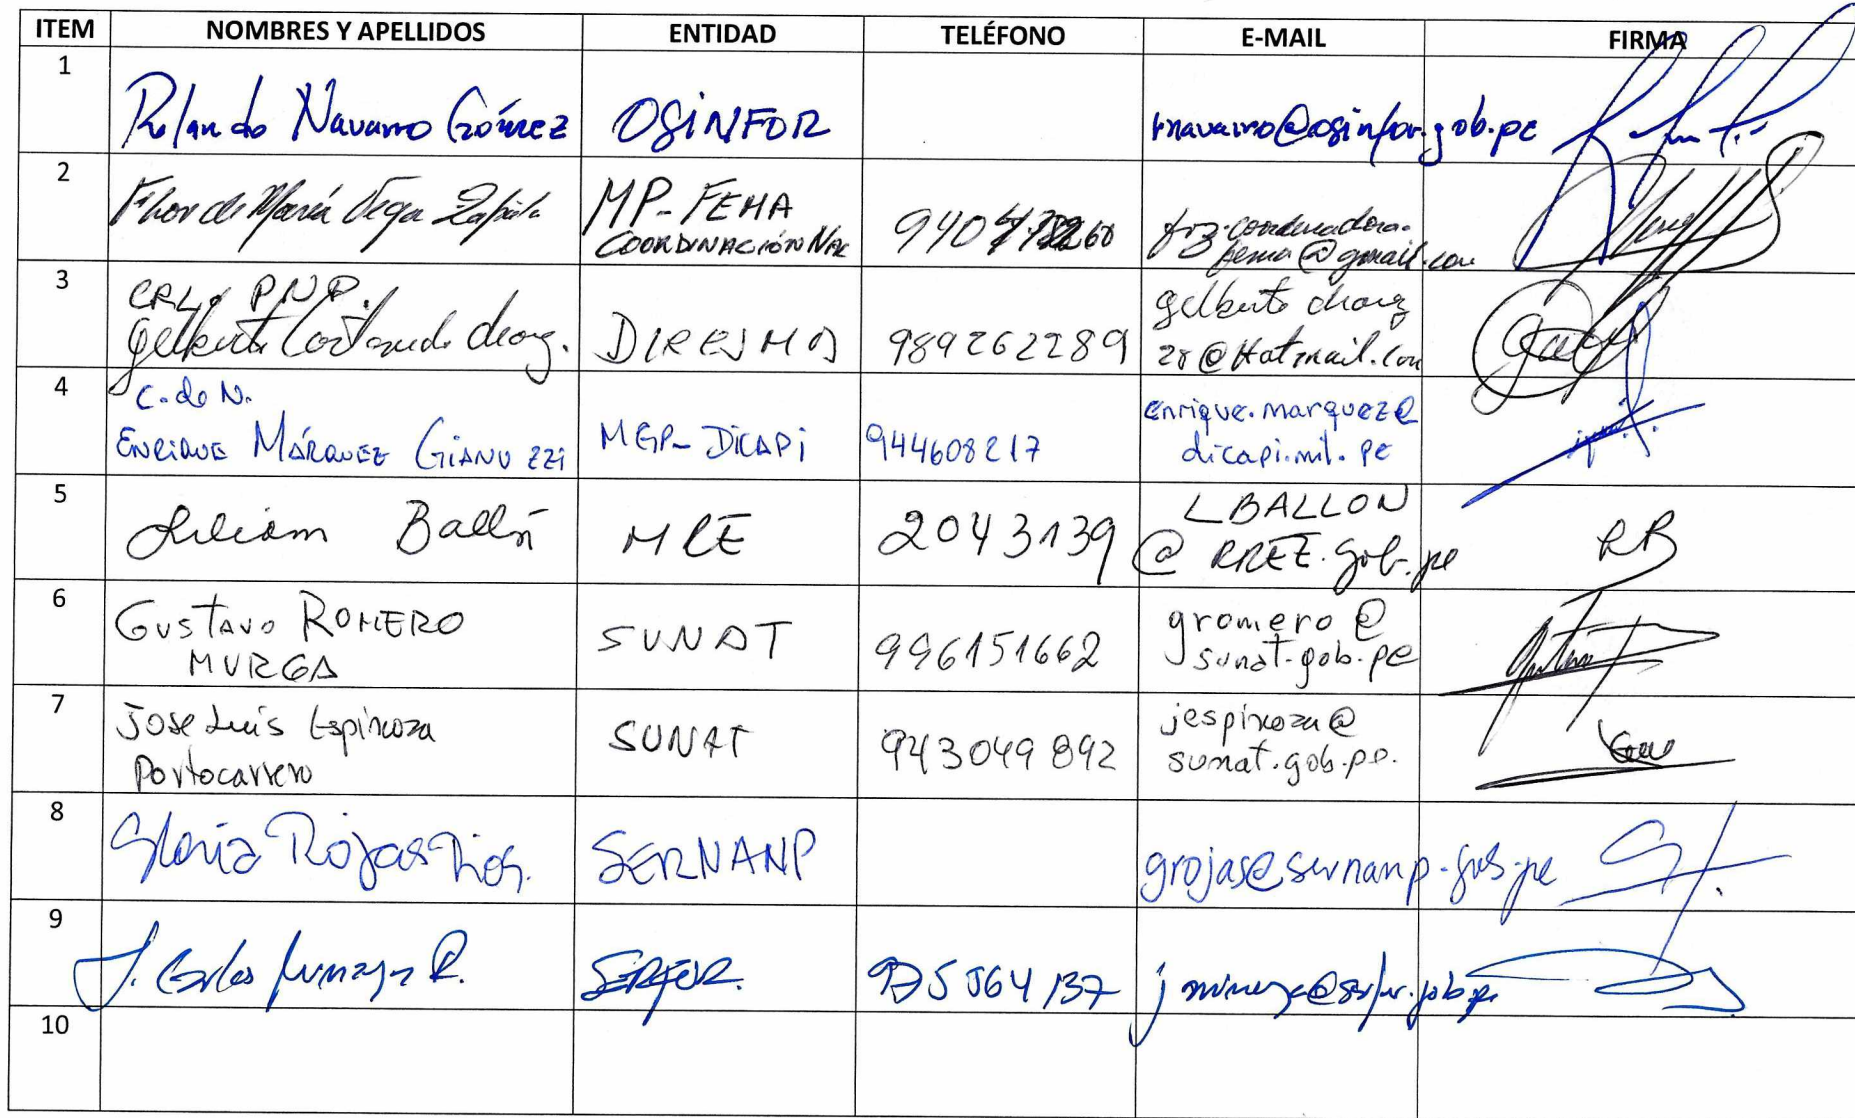 ITEM NOMBRES Y APELLIDOS ENTIDAD TELÉFONO E-MAIL FIRMA
1 Rolando Navarro Gómez OSINFOR rnavarro@osinfor.gob.pe
2 Flor de María Vega Zapata MP-FEMA
COORDINACIÓN NAC 940 fvz.coordinadora.
fema@gmail.com
3 CRL. PNP.
Gilberto Chang. DIREJMA 989262289 gilberto chang
28@Hotmail.com
4 C. de N.
ENRIQUE MÁRQUEZ GIANUZZI MGP-DICAPI 944608217 enrique.marquez@
dicapi.mil.pe
5 Liliam Ballón MRE 2043139 LBALLON
@RREE.gob.pe
6 GUSTAVO ROMERO
MURGA SUNAT 996151662 gromero@
sunat.gob.pe
7 Jose Luis Espinoza
Portocarrero SUNAT 943049892 jespinoza@
sunat.gob.pe.
8 Gloria Rojas Rios. SERNANP grojas@sernanp.gob.pe
9 J. Carlos R. SERFOR. 975564137
10